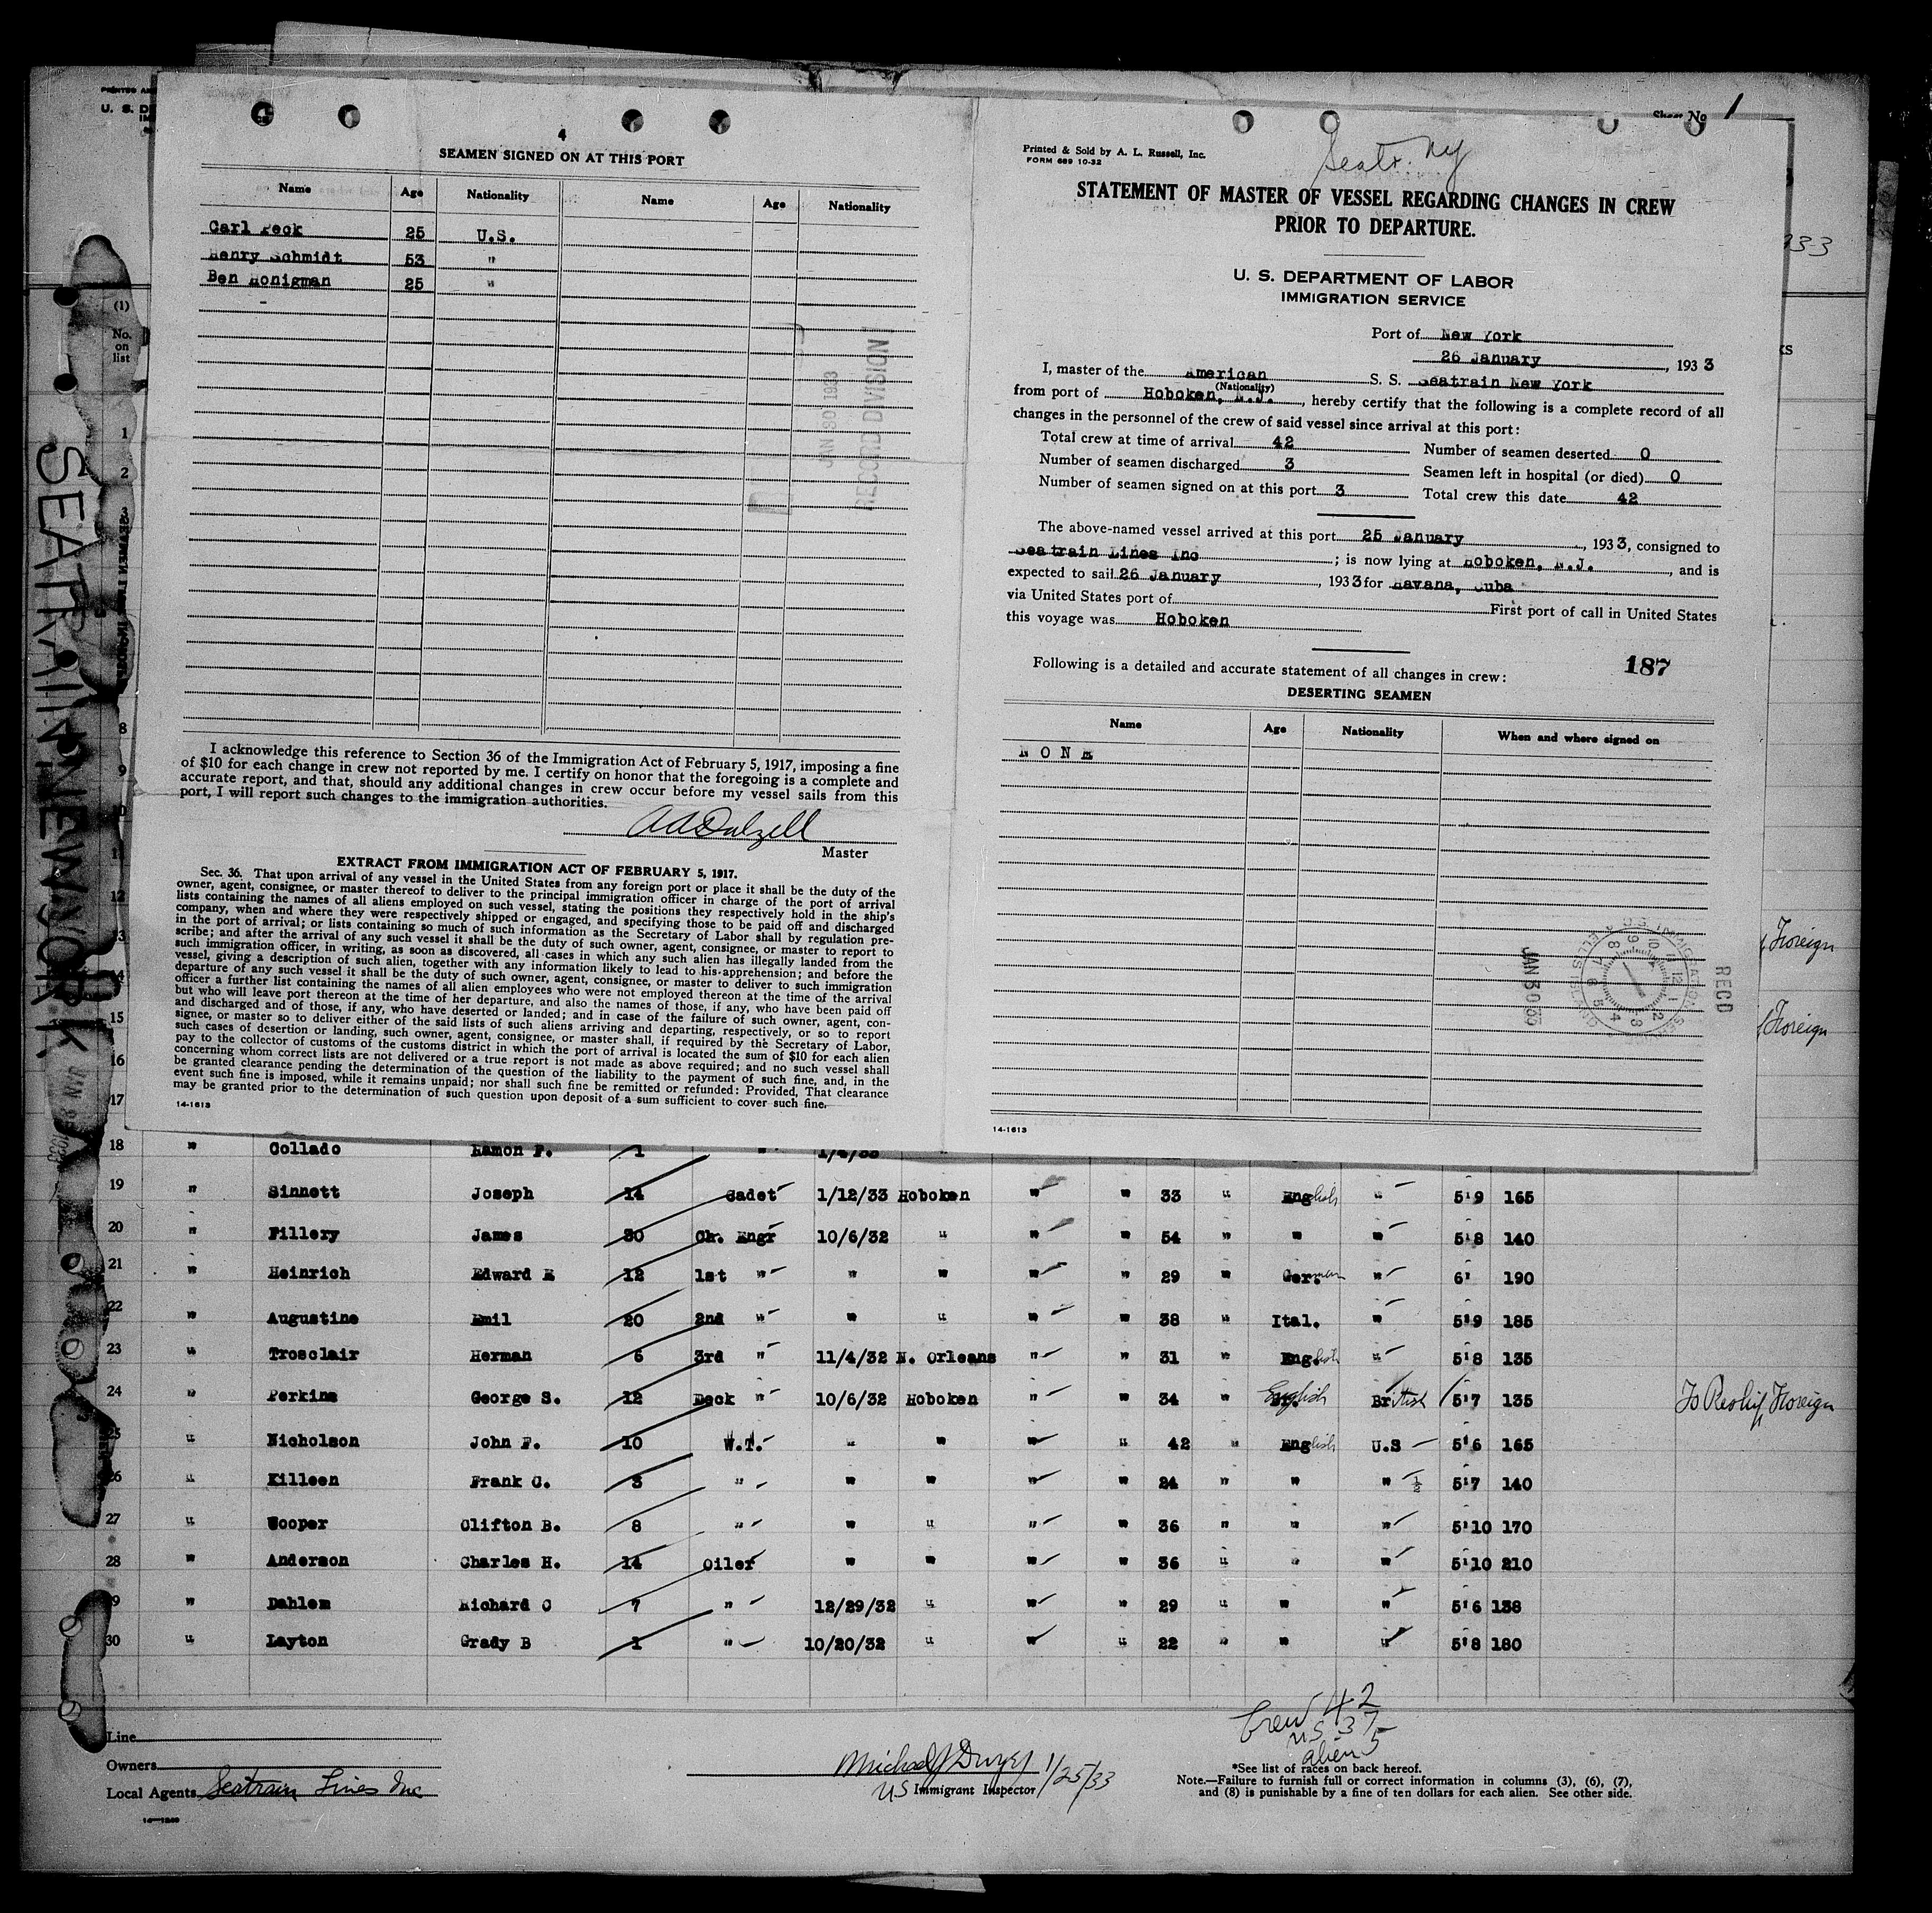 4
SEAMEN SIGNED ON AT THIS PORT
Name Age Nationality Name Age Nationality
Carl Peck 25 U.S.
Henry Schmidt 53 "
Ben Honigman 25 "
JAN 30 1933
RECORD DIVISION
I acknowledge this reference to Section 36 of the Immigration Act of February 5, 1917, imposing a fine
of $10 for each change in crew not reported by me. I certify on honor that the foregoing is a complete and
accurate report, and that, should any additional changes in crew occur before my vessel sails from this
port, I will report such changes to the immigration authorities.
AADalzell
Master
EXTRACT FROM IMMIGRATION ACT OF FEBRUARY 5, 1917.
Sec. 36. That upon arrival of any vessel in the United States from any foreign port or place it shall be the duty of the
owner, agent, consignee, or master thereof to deliver to the principal immigration officer in charge of the port of arrival
lists containing the names of all aliens employed on such vessel, stating the positions they respectively hold in the ship's
company, when and where they were respectively shipped or engaged, and specifying those to be paid off and discharged
in the port of arrival; or lists containing so much of such information as the Secretary of Labor shall by regulation pre-
scribe; and after the arrival of any such vessel it shall be the duty of such owner, agent, consignee, or master to report to
such immigration officer, in writing, as soon as discovered, all cases in which any such alien has illegally landed from the
vessel, giving a description of such alien, together with any information likely to lead to his apprehension; and before the
departure of any such vessel it shall be the duty of such owner, agent, consignee, or master to deliver to such immigration
officer a further list containing the names of all alien employees who were not employed thereon at the time of the arrival
but who will leave port thereon at the time of her departure, and also the names of those, if any, who have been paid off
and discharged and of those, if any, who have deserted or landed; and in case of the failure of such owner, agent, con-
signee, or master so to deliver either of the said lists of such aliens arriving and departing, respectively, or so to report
such cases of desertion or landing, such owner, agent, consignee, or master shall, if required by the Secretary of Labor,
pay to the collector of customs of the customs district in which the port of arrival is located the sum of $10 for each alien
concerning whom correct lists are not delivered or a true report is not made as above required; and no such vessel shall
be granted clearance pending the determination of the question of the liability to the payment of such fine, and, in the
event such fine is imposed, while it remains unpaid; nor shall such fine be remitted or refunded: Provided, That clearance
may be granted prior to the determination of such question upon deposit of a sum sufficient to cover such fine.
14-1613
Sheet No 1
Printed & Sold by A. L. Russell, Inc.
FORM 689 10-32
Seatr. NY
STATEMENT OF MASTER OF VESSEL REGARDING CHANGES IN CREW
PRIOR TO DEPARTURE.
U. S. DEPARTMENT OF LABOR
IMMIGRATION SERVICE
Port of New York
26 January, 1933
I, master of the American S. S. Seatrain New York
(Nationality)
from port of Hoboken, N.J., hereby certify that the following is a complete record of all
changes in the personnel of the crew of said vessel since arrival at this port:
Total crew at time of arrival 42 Number of seamen deserted 0
Number of seamen discharged 3 Seamen left in hospital (or died) 0
Number of seamen signed on at this port 3 Total crew this date 42
The above-named vessel arrived at this port 25 January, 1933, consigned to
Seatrain Lines Inc; is now lying at Hoboken, N.J., and is
expected to sail 26 January, 1933 for Havana, Cuba
via United States port of First port of call in United States
this voyage was Hoboken
187
Following is a detailed and accurate statement of all changes in crew:
DESERTING SEAMEN
Name Age Nationality When and where signed on
NONE
RECD
14-1613
SEATRAIN NEW YORK
(1)
No.
on
list
1
2
8
9
10
11
12
13 Foreign
14
15 Foreign
16
17
18 " Collado Ramon F. 1 " 1/4/33
19 " Sinnett Joseph 14 Cadet 1/12/33 Hoboken " " 33 " English " 5'9 165
20 " Fillery James 30 Ch. Engr 10/6/32 " " " 54 " " " 5'8 140
21 " Heinrich Edward E 12 1st " " " " " 29 " German " 6' 190
22 " Augustine Emil 20 2nd " " " " " 38 " Ital. " 5'9 185
23 " Trosclair Herman 6 3rd " 11/4/32 N. Orleans " " 31 " English " 5'8 135
24 " Perkins George S. 12 Deck " 10/6/32 Hoboken " " 34 " English British 5'7 135 To Reship Foreign
25 " Nicholson John F. 10 W.T. " " " " 42 " English U.S 5'6 165
26 " Killeen Frank C. 3 " " " " " 24 " " " 5'7 1/2 140
27 " Cooper Clifton B. 8 " " " " " 36 " " " 5'10 170
28 " Anderson Charles H. 14 Oiler " " " " 36 " " " 5'10 210
29 " Dahlem Richard C 7 " 12/29/32 " " " 29 " " " 5'6 138
30 " Layton Grady B 1 " 10/20/32 " " " 22 " " " 5'8 180
Crew 42
US 37
alien 5
Line
Owners
Local Agents Seatrain Lines Inc
Michael J Dwyer 1/25/33
US Immigrant Inspector
*See list of races on back hereof.
Note.—Failure to furnish full or correct information in columns (3), (6), (7),
and (8) is punishable by a fine of ten dollars for each alien. See other side.